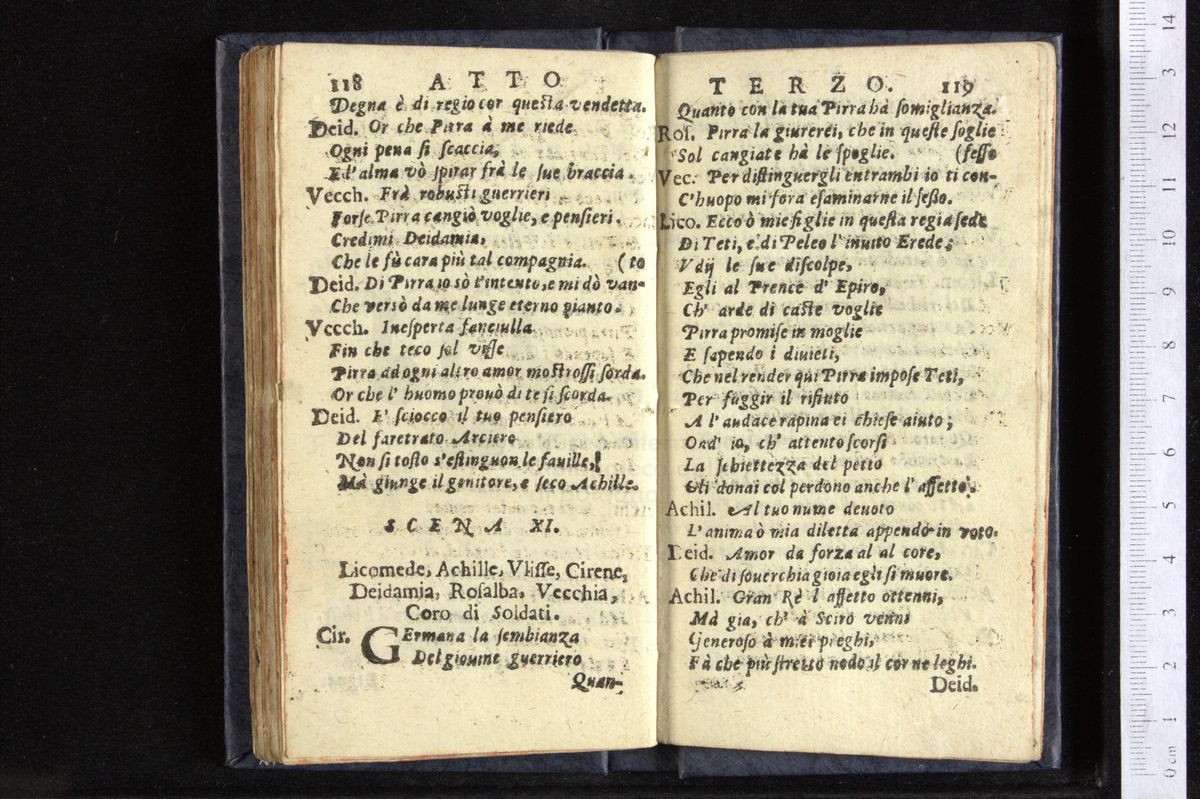 118 ATTO
Degna è di regio cor questa vendetta.
Deid. Or che Pirra à me riede
Ogni pena si scaccia,
E l'alma vò spirar frà le sue braccia.
Vecch. Frà robusti guerrieri
Forse Pirra cangiò voglie, e pensieri.
Credimi Deidamia,
Che le fù cara più tal compagnia. (to
Deid. Di Pirra io sò l'intento, e mi dò van-
Che versò da me lunge eterno pianto.
Vecch. Inesperta fanciulla
Fin che teco sol visse
Pirra ad ogni altro amor mostrossi sorda.
Or che l'huomo provò di te si scorda.
Deid. E' sciocco il tuo pensiero
Del faretrato Arciero
Non si tosto s'estinguon le faville,
Mà giunge il genitore, e seco Achille.
SCENA XI.
Licomede, Achille, Vlisse, Cirene,
Deidamia, Rosalba, Vecchia,
Coro di Soldati.
Cir. GErmana la sembianza
Del giovine guerriero
Quan-
TERZO. 119
Quanto con la tua Pirra hà somiglianza.
Ros. Pirra la giurerei, che in queste soglie
Sol cangiate hà le spoglie. (fesso
Vec. Per distinguergli entrambi io ti con-
C'huopo mi fora esaminarne il sesso.
Lico. Ecco ò mie figlie in questa regia sede
Di Teti, e di Peleo l'inuito Erede;
Vdij le sue discolpe,
Egli al Prence d'Epiro,
Ch'arde di caste voglie
Pirra promise in moglie
E sapendo i diuieti,
Che nel render qui Pirra impose Teti,
Per fuggir il rifiuto
A l'audace rapina ei chiese aiuto;
Ond' io, ch'attento scorsi
La schiettezza del petto
Gli donai col perdono anche l'affetto.
Achil. Al tuo nume deuoto
L'anima ò mia diletta appendo in voto.
Deid. Amor da forza al al core,
Che di souerchia gioia egli si muore.
Achil. Gran Rè l affetto ottenni,
Mà gia, ch' à Sciro venni
Generoso à miei prieghi,
Fà che più stretto nodo il cor ne leghi.
Deid.
0 cm 1 2 3 4 5 6 7 8 9 10 11 12 3 14